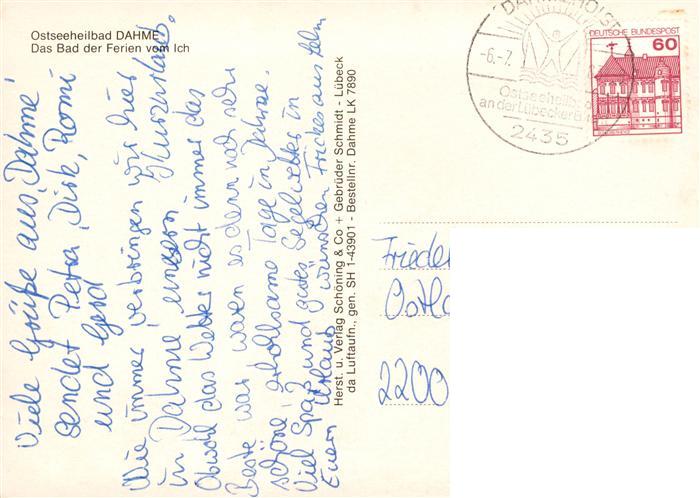 Ostseeheilbad DAHME
Das Bad der Ferien vom Ich
Viele Grüße aus, Dahme'
sendet Petra, Dirk, Romi
und Gerd
Wie immer verbringen wir hier
in Dahme' unsern Kurzurlaub.
Obwohl das Wetter nicht immer das
Beste war waren es dann noch sehr
schöne, erholsame Tage in Dahme.
Viel Spaß und gutes Segelwetter in
Euern Urlaub wünschen
Herst. u. Verlag Schöning & Co + Gebrüder Schmidt - Lübeck
da Luftaufn., gen. SH 1-43901 - Bestellnr. Dahme LK 7890
-6.-7.
Ostseeheilbad
an der Lübecker
2435
DEUTSCHE BUNDESPOST
60
Friede
Ostl
2200